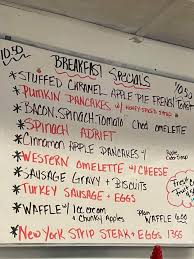 10.50
BREAKFAST SPECIALS
*STUFFED CARAMEL APPLE PIE FRENCH TOAST
10.50
*PUMKIN PANCAKES w/ HONEY SPICED SYRUP
*BACON, SPINACH, TOMATO Ched OMELETTE
*SPINACH ADRIFT
*Cinnamon APPLE PANCAKES w/ Apple Cider Syrup
*WESTERN OMELETTE w/ CHEESE
*SAUSAGE GRAVY + BISCUITS
*TURKEY SAUSAGE + EGGS
*WAFFLE w/ Ice cream + Chunky Apples
Plain WAFFLE 10.00
*NEW YORK STRIP STEAK + EGGS 13.95